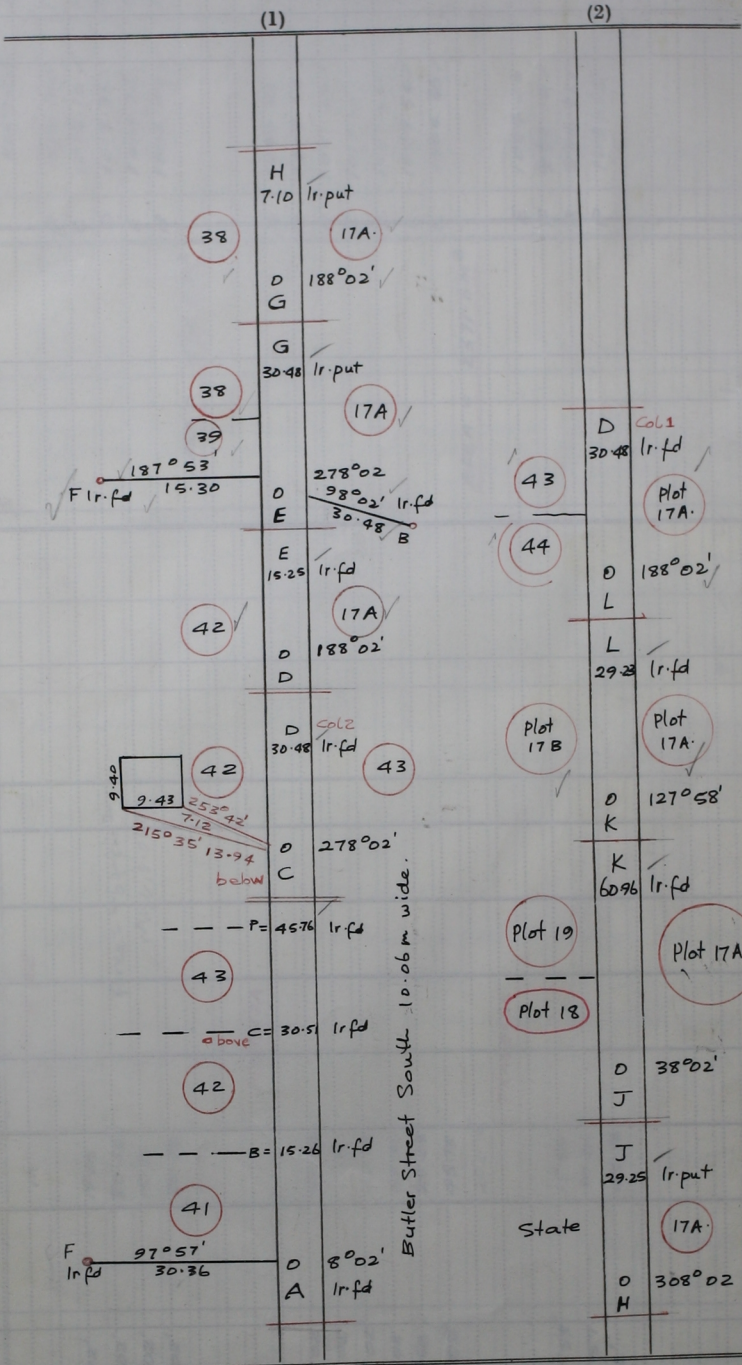 (1)
H
7.10 Ir.put
38
17A.
0 188°02'
G
G
30.48 Ir.put
38
17A
39
187°53'
F Ir.fd 15.30
278°02
98°02' Ir.fd
30.48 B
0
E
E
15.25 Ir.fd
17A
42
0 188°02'
D
D Col2
30.48 Ir.fd
42
43
9.40
9.43
253°42'
7.12
215°35' 13.94
0 278°02'
below C
P= 45.76 Ir.fd
43
C= 30.51 Ir fd
above
42
B= 15.26 Ir.fd
41
F 97°57'
Ir fd 30.36
0 8°02'
A Ir.fd
Butler Street South 10.06m wide.
(2)
D Col1
30.48 Ir.fd
43
Plot
17A.
44
0 188°02'
L
L
29.23 Ir.fd
Plot
17B
Plot
17A.
0 127°58'
K
K
60.96 Ir.fd
Plot 19
Plot 17A
Plot 18
0 38°02'
J
J
29.25 Ir.put
State
17A.
0 308°02
H